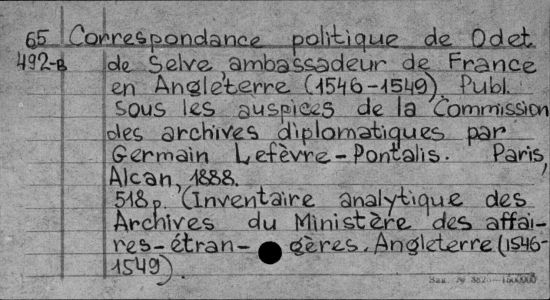 65 Correspondance politique de Odet
492-B de Selve, ambassadeur de France
en Angleterre (1546-1549). Publ.
sous les auspices de la Commission
des archives diplomatiques par
Germain Lefèvre-Pontalis. Paris,
Alcan, 1888.
518 p. (Inventaire analytique des
Archives du Ministère des affai-
res-étran-gères. Angleterre (1546-
1549).